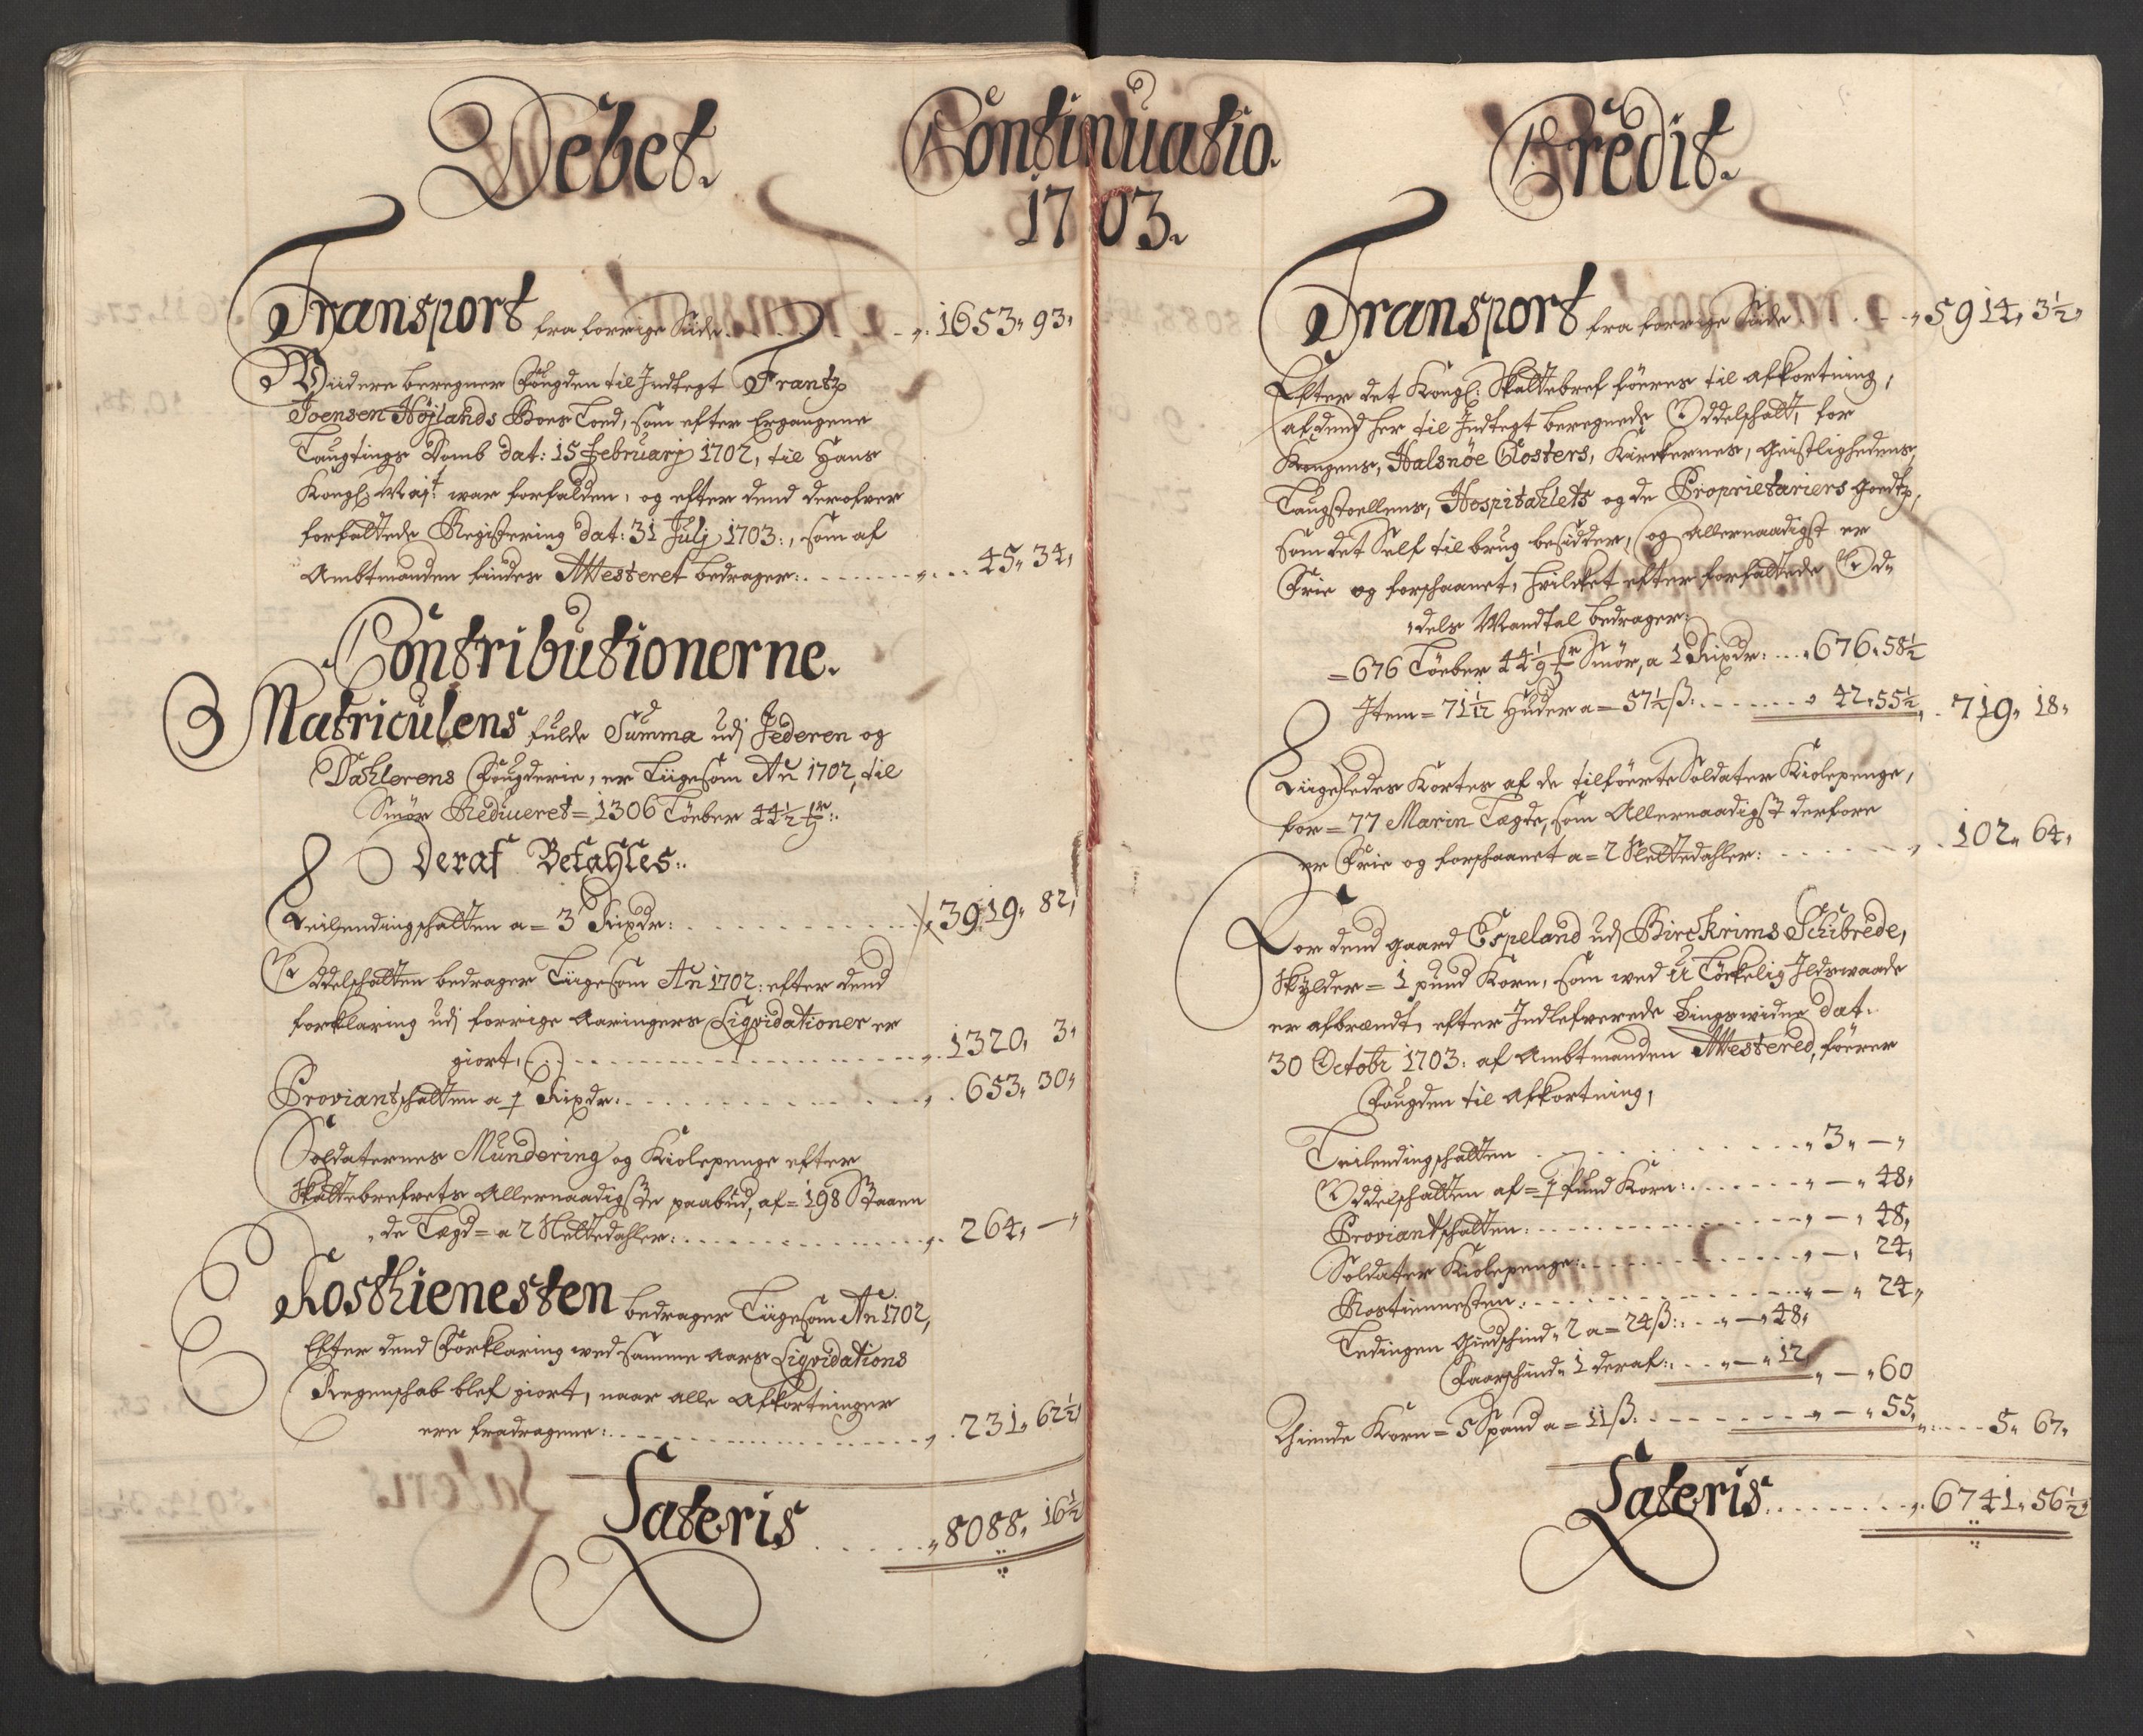 Debet.
Continuatio.
1703.
Transport fra forrige Siide . . . . 1653„ 93„
Wiidere beregner Fougden til Indtegt Frantz
Joensen Høÿlands Boes Lod, som efter Ergangene
Laugtings Domb dat: 15 Februarÿ 1702, til Hans
Kongl Maÿt war forfalden, og efter dend derofver
forfattede Registering dat: 31 Julÿ 1703:, som af
Ambtmanden findes Attesteret bedrager: . . . . 45„ 34„
Contributionerne.
Matriculens fulde Summa udj Jederen og
Dahlerens Fougderie, er Liigesom Ao 1702, til
Smør Reduceret = 1306 Løeber 44½ pr:
Deraf Betahles:
Leilendingschatten a = 3 Rixdr: . . . . 3919„ 82„
Oddelschatten bedrager Liigesom Ao 1702: efter dend
forklaring udj forrige Aaringers Liqvidationer er
giort, . . . . 1320„ 3„
Proviantschatten a ½ Rixdr: . . . . 653„ 30„
Soldaternes Mundering og Kiolepenge efter
Skattebrefvets Allernaadigste paabud, af = 198 Staaen
„de Lægd = a 2 Slettedahler: . . . . 264„ —„
Rosthienesten bedrager Liigesom Ao 1702,
Efter dend Forklaring wed samme Aars Liqvidations
Regenschab blef giort, naar alle Afkortninger
ere fradragene: . . . . 231„ 62½„
Lateris . . . . 8088„ 16½
Credit.
Transport fra forrige Siide . . . . 5914„ 3½„
Efter det Kongl: Skattebref føeres til afkortning,
(af dend her til Indtegt beregnede Oddelschatt, for
Kongens, Halsnøe Closters, Kirckernes, Geistlighedens,
Laugstoellens, Hospitahlets og de Proprietariers Goedtz,
som det Self til brug besidder, og Allernaadigst er
Frie og forschaanet, hvilcket efter forfattede Od„
„dels Mandtal bedrager:
= 676 Løeber 44 1/9 pr Smør, a 1 Rixdr: . . . 676„ 58½
Item = 71 1/12 Huder a = 57½ ß: . . . . 42„ 55½„ . 719„ 18„
Liigeledes Kortes af de tilføerte Soldater Kiolepenge,
for = 77 Marin Lægde, som Allernaadigst derfore
er Frie og forschaanet a = 2 Slettedahler: . . . . 102„ 64„
For dend gaard Espeland udj Birckrims Schibrede,
Skylder = 1 pund Korn, som wed u Lÿckelig Ildswaade
er afbrændt, efter Indlefverede Tingswidne dat.
30 Octobr 1703: af Ambtmanden Attestered, føerer
Fougden til Afkortning,
Leilendingschatten . . . . 3„ —„
Oddelschatten af = 1 pund Korn: . . . . —„ 48„
Proviantschatten: . . . . —„ 48„
Soldater Kiolepenge: . . . . —„ 24„
Rostiennesten: . . . . —„ 24„
Ledingen Giedschind„ 2 a = 24 ß: . . —„ 48„
Faarschind„ 1 deraf: . . . —„ 12„ „ —„ 60
Thiende Korn = 5 Spand a = 11 ß: . . . . —„ 55„ . . . . 5„ 67„
Lateris . . . . 6741„ 56½„